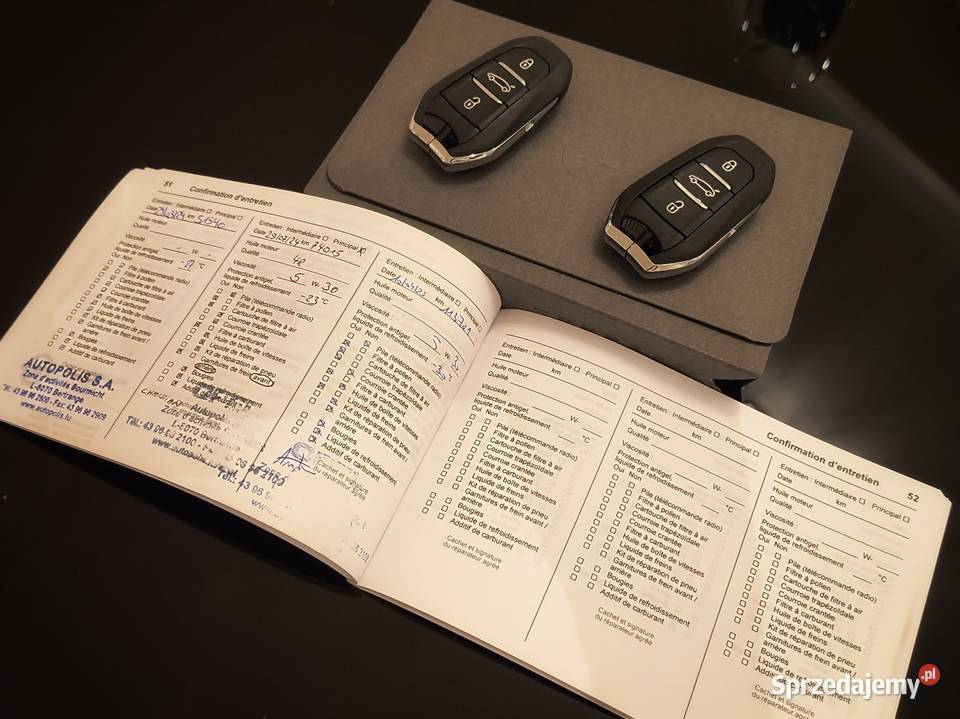 51 Confirmation d'entretien
Entretien : Intermédiaire Principal
Date km 51540
Huile moteur
Qualité
Viscosité W-
Protection antigel
liquide de refroidissement °C
Oui Non
Pile (télécommande radio)
Filtre à pollen
Cartouche de filtre à air
Courroie trapézoïdale
Courroie crantée
Filtre à carburant
Huile de boîte de vitesses
Liquide de freins
Kit de réparation de pneu
Garnitures de frein avant /
arrière
Bougies
Liquide de refroidissement
Additif de carburant
AUTOPOLIS S.A.
Zone d'activités Bourmicht
L-8070 Bertrange
www.autopolis.lu
Entretien : Intermédiaire Principal X
Date 29/07/24 km 74015
Huile moteur
Qualité
Viscosité 5 W- 30
Protection antigel
liquide de refroidissement -23 °C
Oui Non
Pile (télécommande radio)
Filtre à pollen
Cartouche de filtre à air
Courroie trapézoïdale
Courroie crantée
Filtre à carburant
Huile de boîte de vitesses
Liquide de freins
Kit de réparation de pneu
Garnitures de frein avant /
arrière
Bougies
Entretien : Intermédiaire Principal
Date km
Huile moteur
Qualité
Viscosité 5 W-
Protection antigel
liquide de refroidissement °C
Oui Non
Pile (télécommande radio)
Filtre à pollen
Cartouche de filtre à air
Courroie trapézoïdale
Courroie crantée
Filtre à carburant
Huile de boîte de vitesses
Liquide de freins
Kit de réparation de pneu
Garnitures de frein avant /
arrière
Bougies
Liquide de refroidissement
Additif de carburant
Cachet et signature
du réparateur agréé
Entretien : Intermédiaire Principal
Date km
Huile moteur
Qualité
Viscosité : W-
Protection antigel
liquide de refroidissement °C
Oui Non
Pile (télécommande radio)
Filtre à pollen
Cartouche de filtre à air
Courroie trapézoïdale
Courroie crantée
Filtre à carburant
Huile de boîte de vitesses
Liquide de freins
Kit de réparation de pneu
Garnitures de frein avant /
arrière
Bougies
Liquide de refroidissement
Additif de carburant
Cachet et signature
du réparateur agréé
Entretien : Intermédiaire Principal
Date km
Huile moteur
Qualité
Viscosité : W-
Protection antigel
liquide de refroidissement °C
Oui Non
Pile (télécommande radio)
Filtre à pollen
Cartouche de filtre à air
Courroie trapézoïdale
Courroie crantée
Filtre à carburant
Huile de boîte de vitesses
Liquide de freins
Kit de réparation de pneu
Garnitures de frein avant /
arrière
Bougies
Liquide de refroidissement
Additif de carburant
Cachet et signature
du réparateur agréé
Confirmation d'entretien 52
Entretien : Intermédiaire Principal
Date km
Huile moteur
Qualité
Viscosité : W-
Protection antigel
liquide de refroidissement °C
Oui Non
Pile (télécommande radio)
Filtre à pollen
Cartouche de filtre à air
Courroie trapézoïdale
Courroie crantée
Filtre à carburant
Huile de boîte de vitesses
Liquide de freins
Kit de réparation de pneu
Garnitures de frein avant /
arrière
Bougies
Liquide de refroidissement
Additif de carburant
Cachet et signature
du réparateur agréé
Sprzedajemy.pl